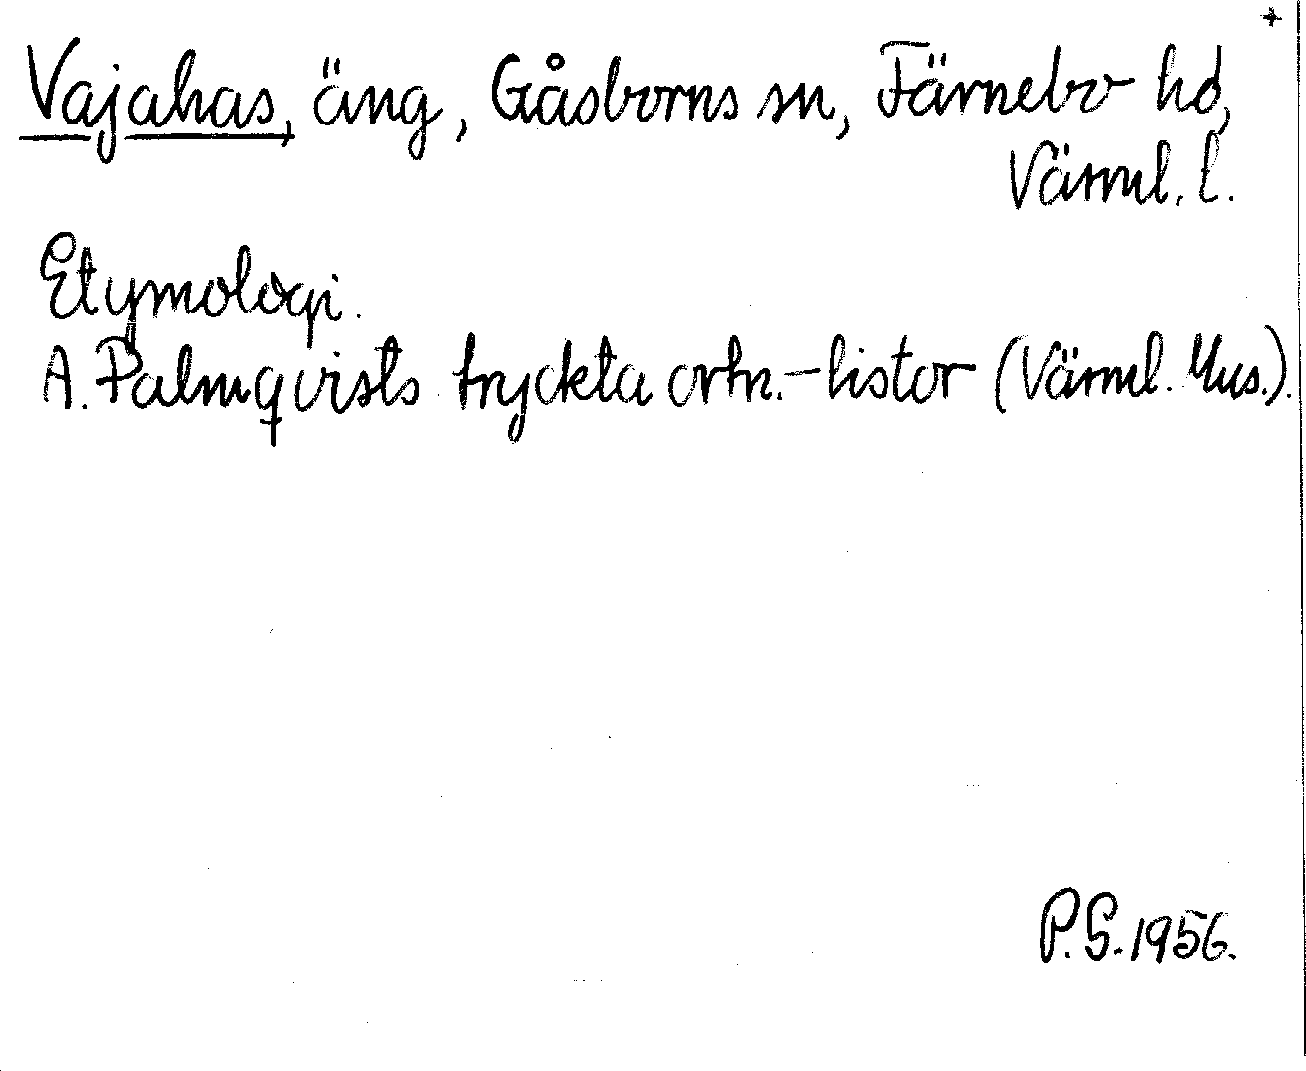 +
Vajahas, äng, Gåsborns sn, Färnebo hd,
Värml. l.
Etymologi.
A. Palmqvists tryckta ortn.-listor (Värml. Mus.).
P.G. 1956.